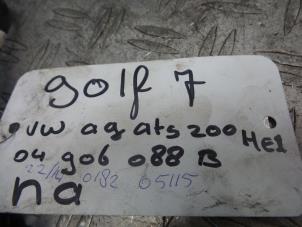 golf 7
vw ag ats 200 HE1
04 906 088 B
22/14 0182 05115
na